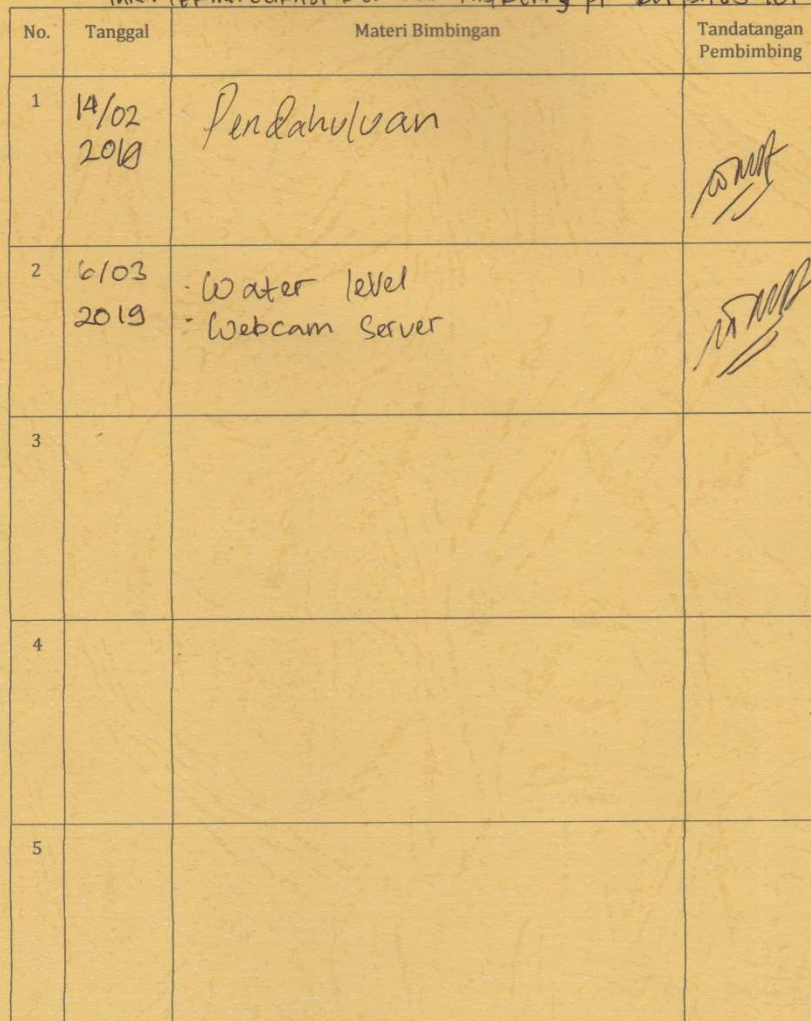 No. Tanggal Materi Bimbingan Tandatangan
Pembimbing
1 14/02 Pendahuluan
2019
2 6/03 - Water level
2019 - Webcam Server
3
4
5